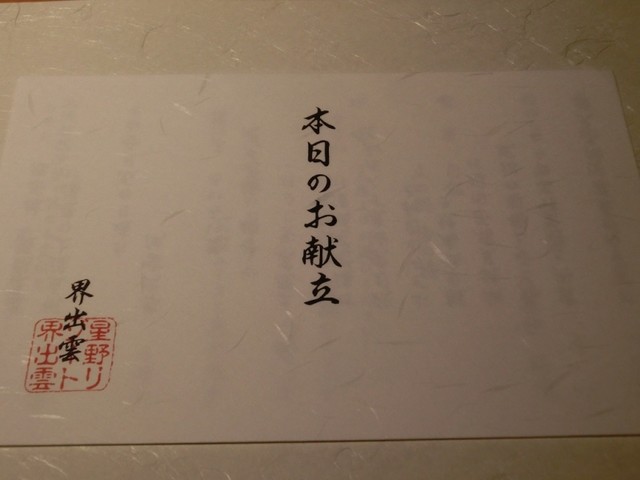 本日のお献立
界出雲
星野リ
ゾート
界出雲